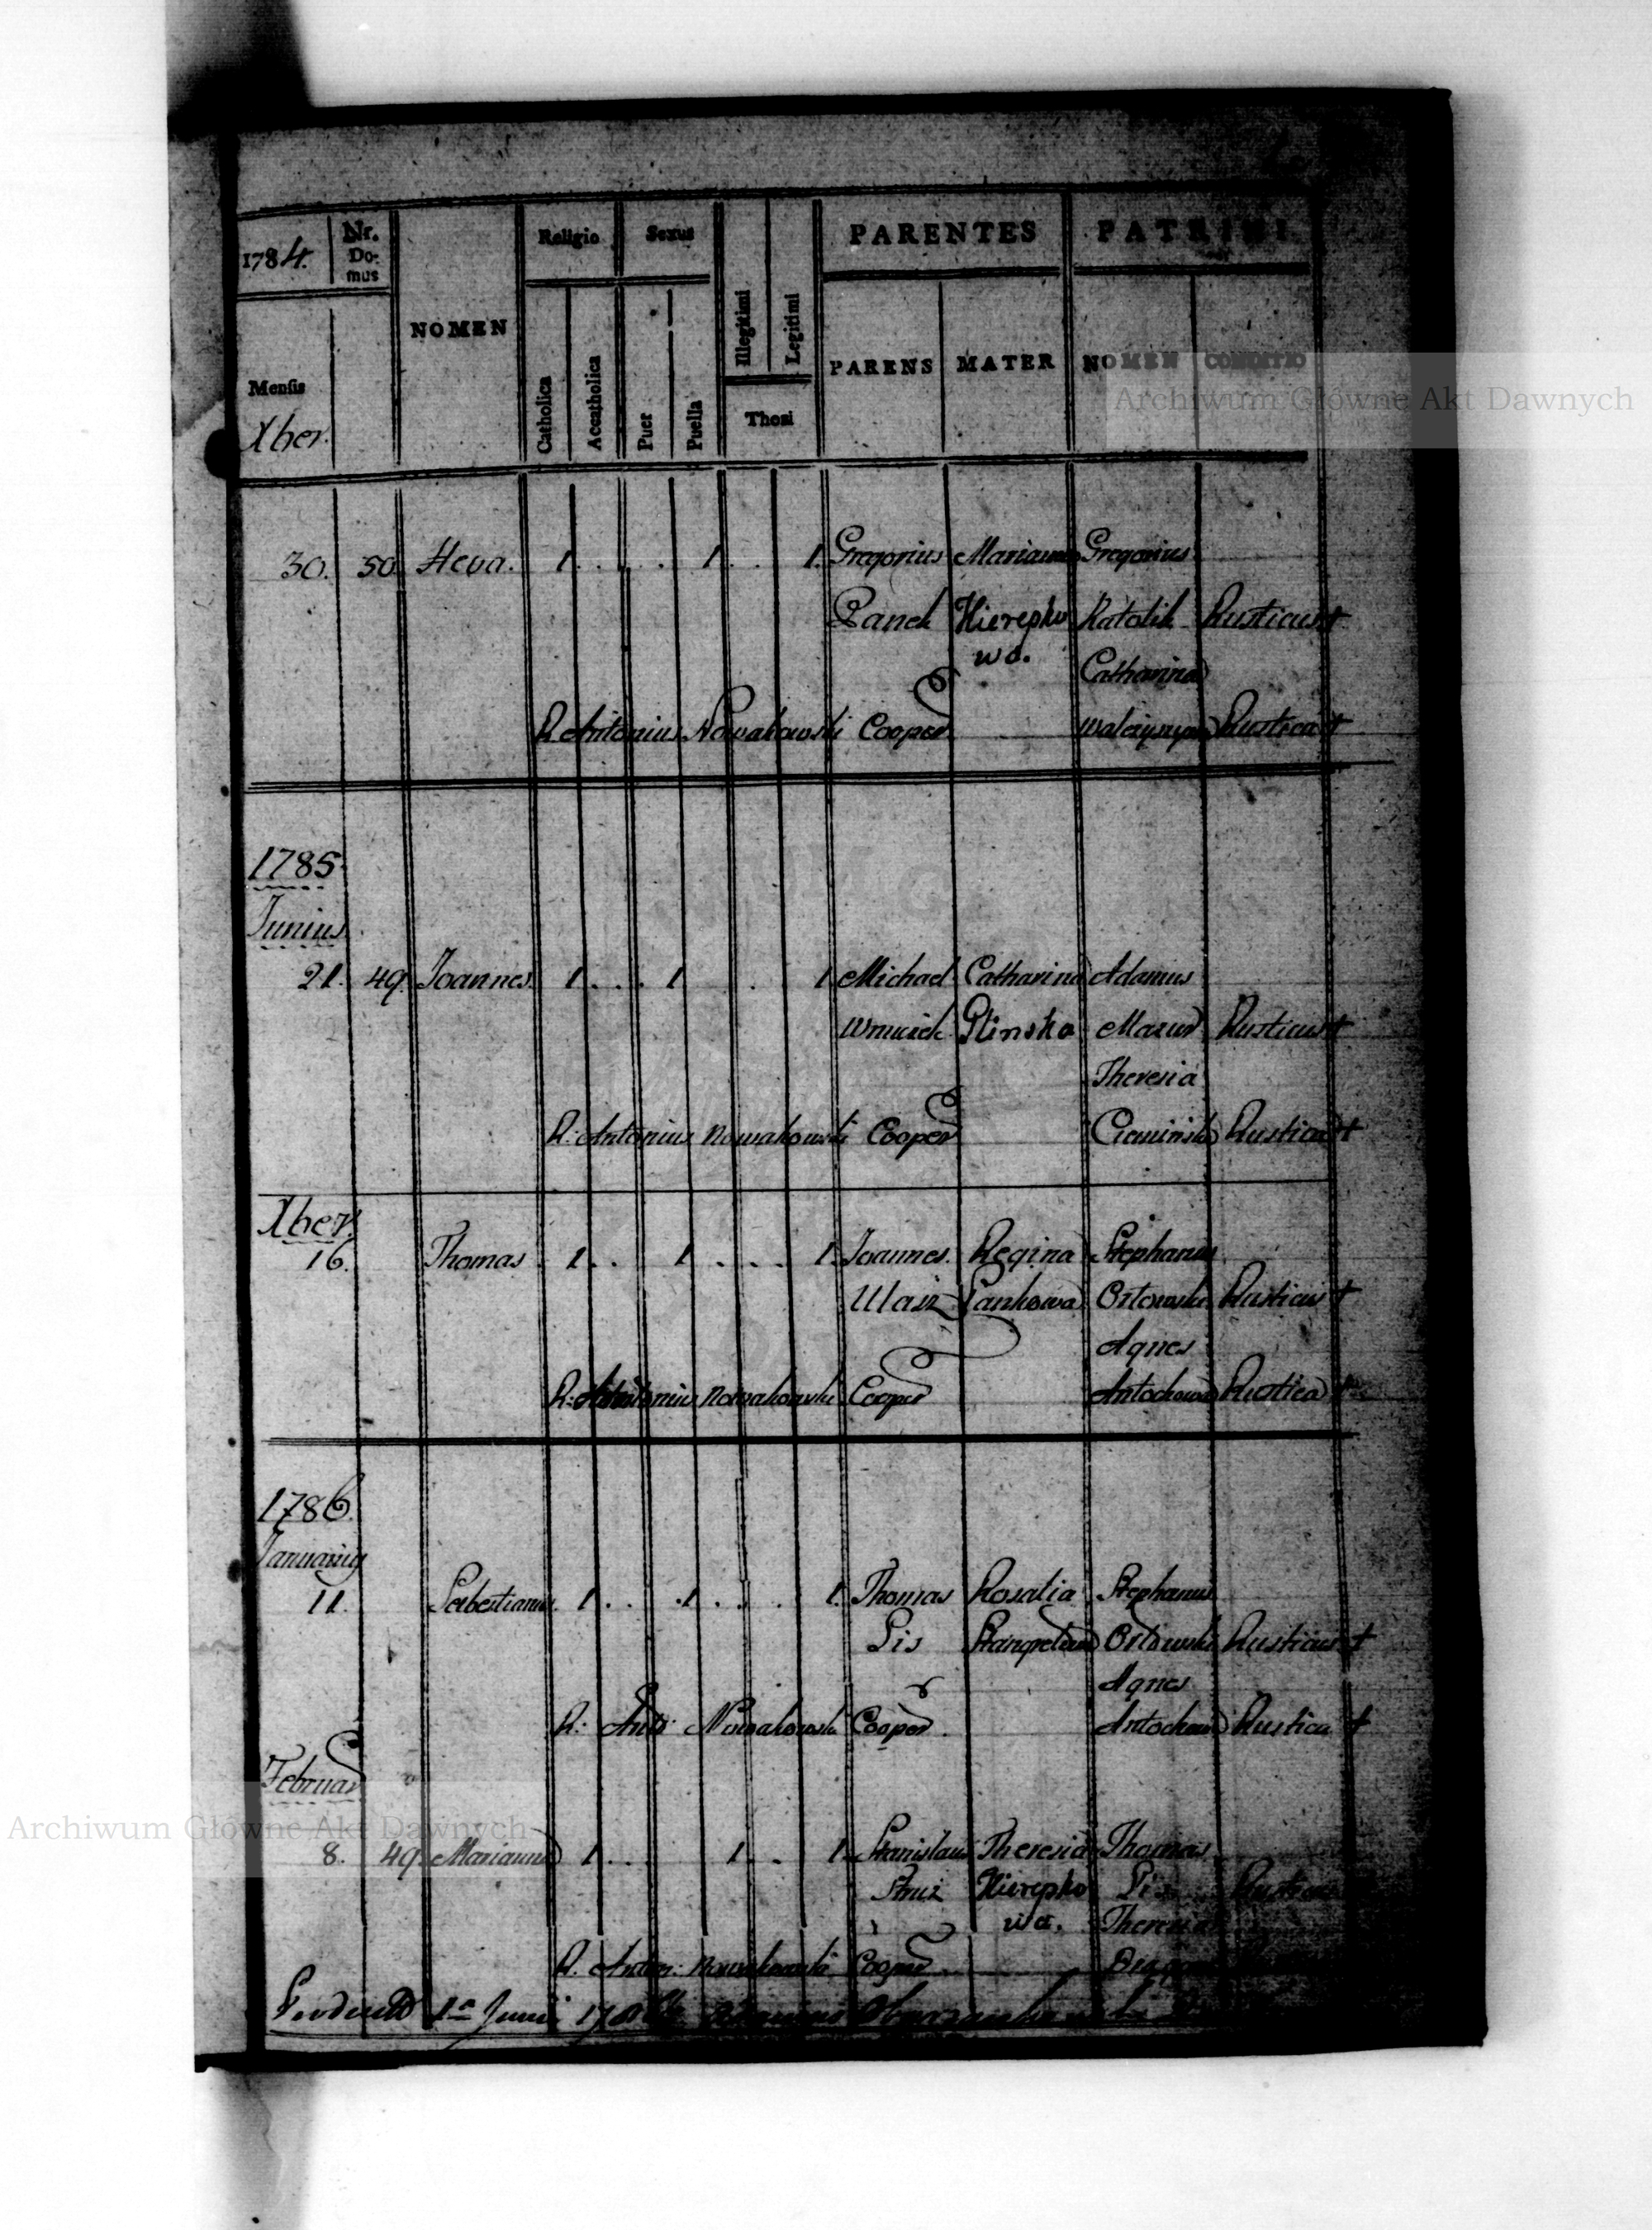 1784. Nr. Domus NOMEN Religio Sexus PARENTES PATRINI
Mensis Catholica Acatholica Puer Puella Illegitimi Legitimi PARENS MATER NOMEN CONDITIO
Xber. Thori
Archiwum Główne Akt Dawnych
30. 50 Heva. 1 . . . 1 . . 1. Gregorius Marianna Gregorius
Panek Hierepko Katolik Rusticus +
wa. Catharina
R. Antonius Nowakowski Cooper Rustica +
1785.
Junius.
21. 49. Joannes. 1 . . . 1 . 1 Michael Catharina Adamus
Plinska Mazur Rusticus +
Theresia
R: Antonius Nowakowski Cooper Rustica +
Xber.
16. Thomas 1 . . 1 . . . 1. Joannes. Regina Stephanus
Pankowa Ortowski Rusticus +
Agnes
R: Antonius Nowakowski Cooper Antochowa Rustica +
1786.
Januarius
11. Sebestianus. 1 . . . 1 . . . 1. Thomas Rosalia Stephanus
Pis Ortowski Rusticus +
Agnes
R: Anto: Nowakowski Cooper Antochowa Rustica +
Februar
Archiwum Główne Akt Dawnych
8. 49. Marianna 1 . . 1 . . 1. Stanislaus Theresia Thomas
Hierepko Pis Rusticus
wa. Theresia
R. Anton: Nowakowski Cooper
1a Junii